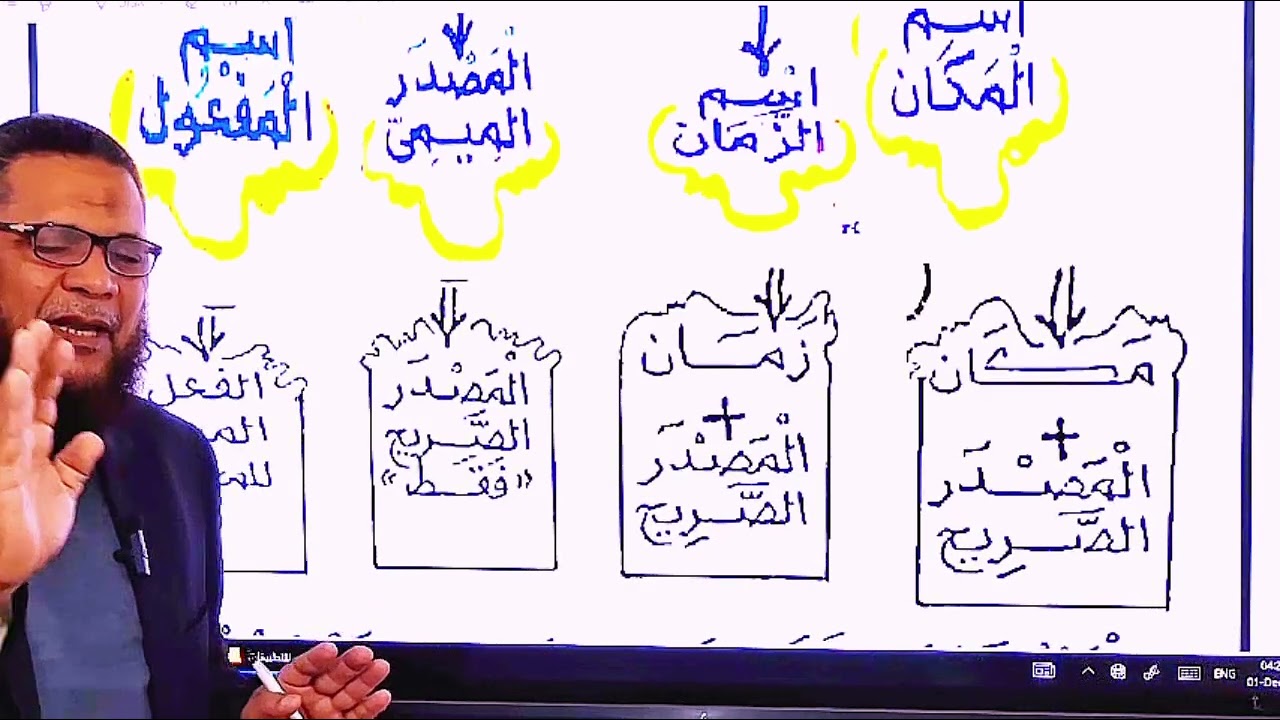 اسم
الْمَكَان
اسم
الزَّمَان
الْمَصْدَر
الْمِيمِيّ
اسم
الْمَفْعُول
مَكَان
+
الْمَصْدَر
الصَّرِيح
زَمَان
+
الْمَصْدَر
الصَّرِيح
الْمَصْدَر
الصَّرِيح
«فَقَط»
الفعل
ENG